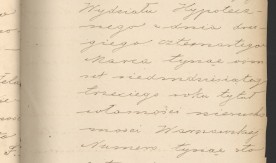 Wydziału Hypotecz-
nego z dnia dru-
giego czternastego
Marca tysiąc osm
set siedmdziesiątego
trzeciego roku tytuł
własności nierucho-
mości Warszawskiej
Numer tysiąc sto